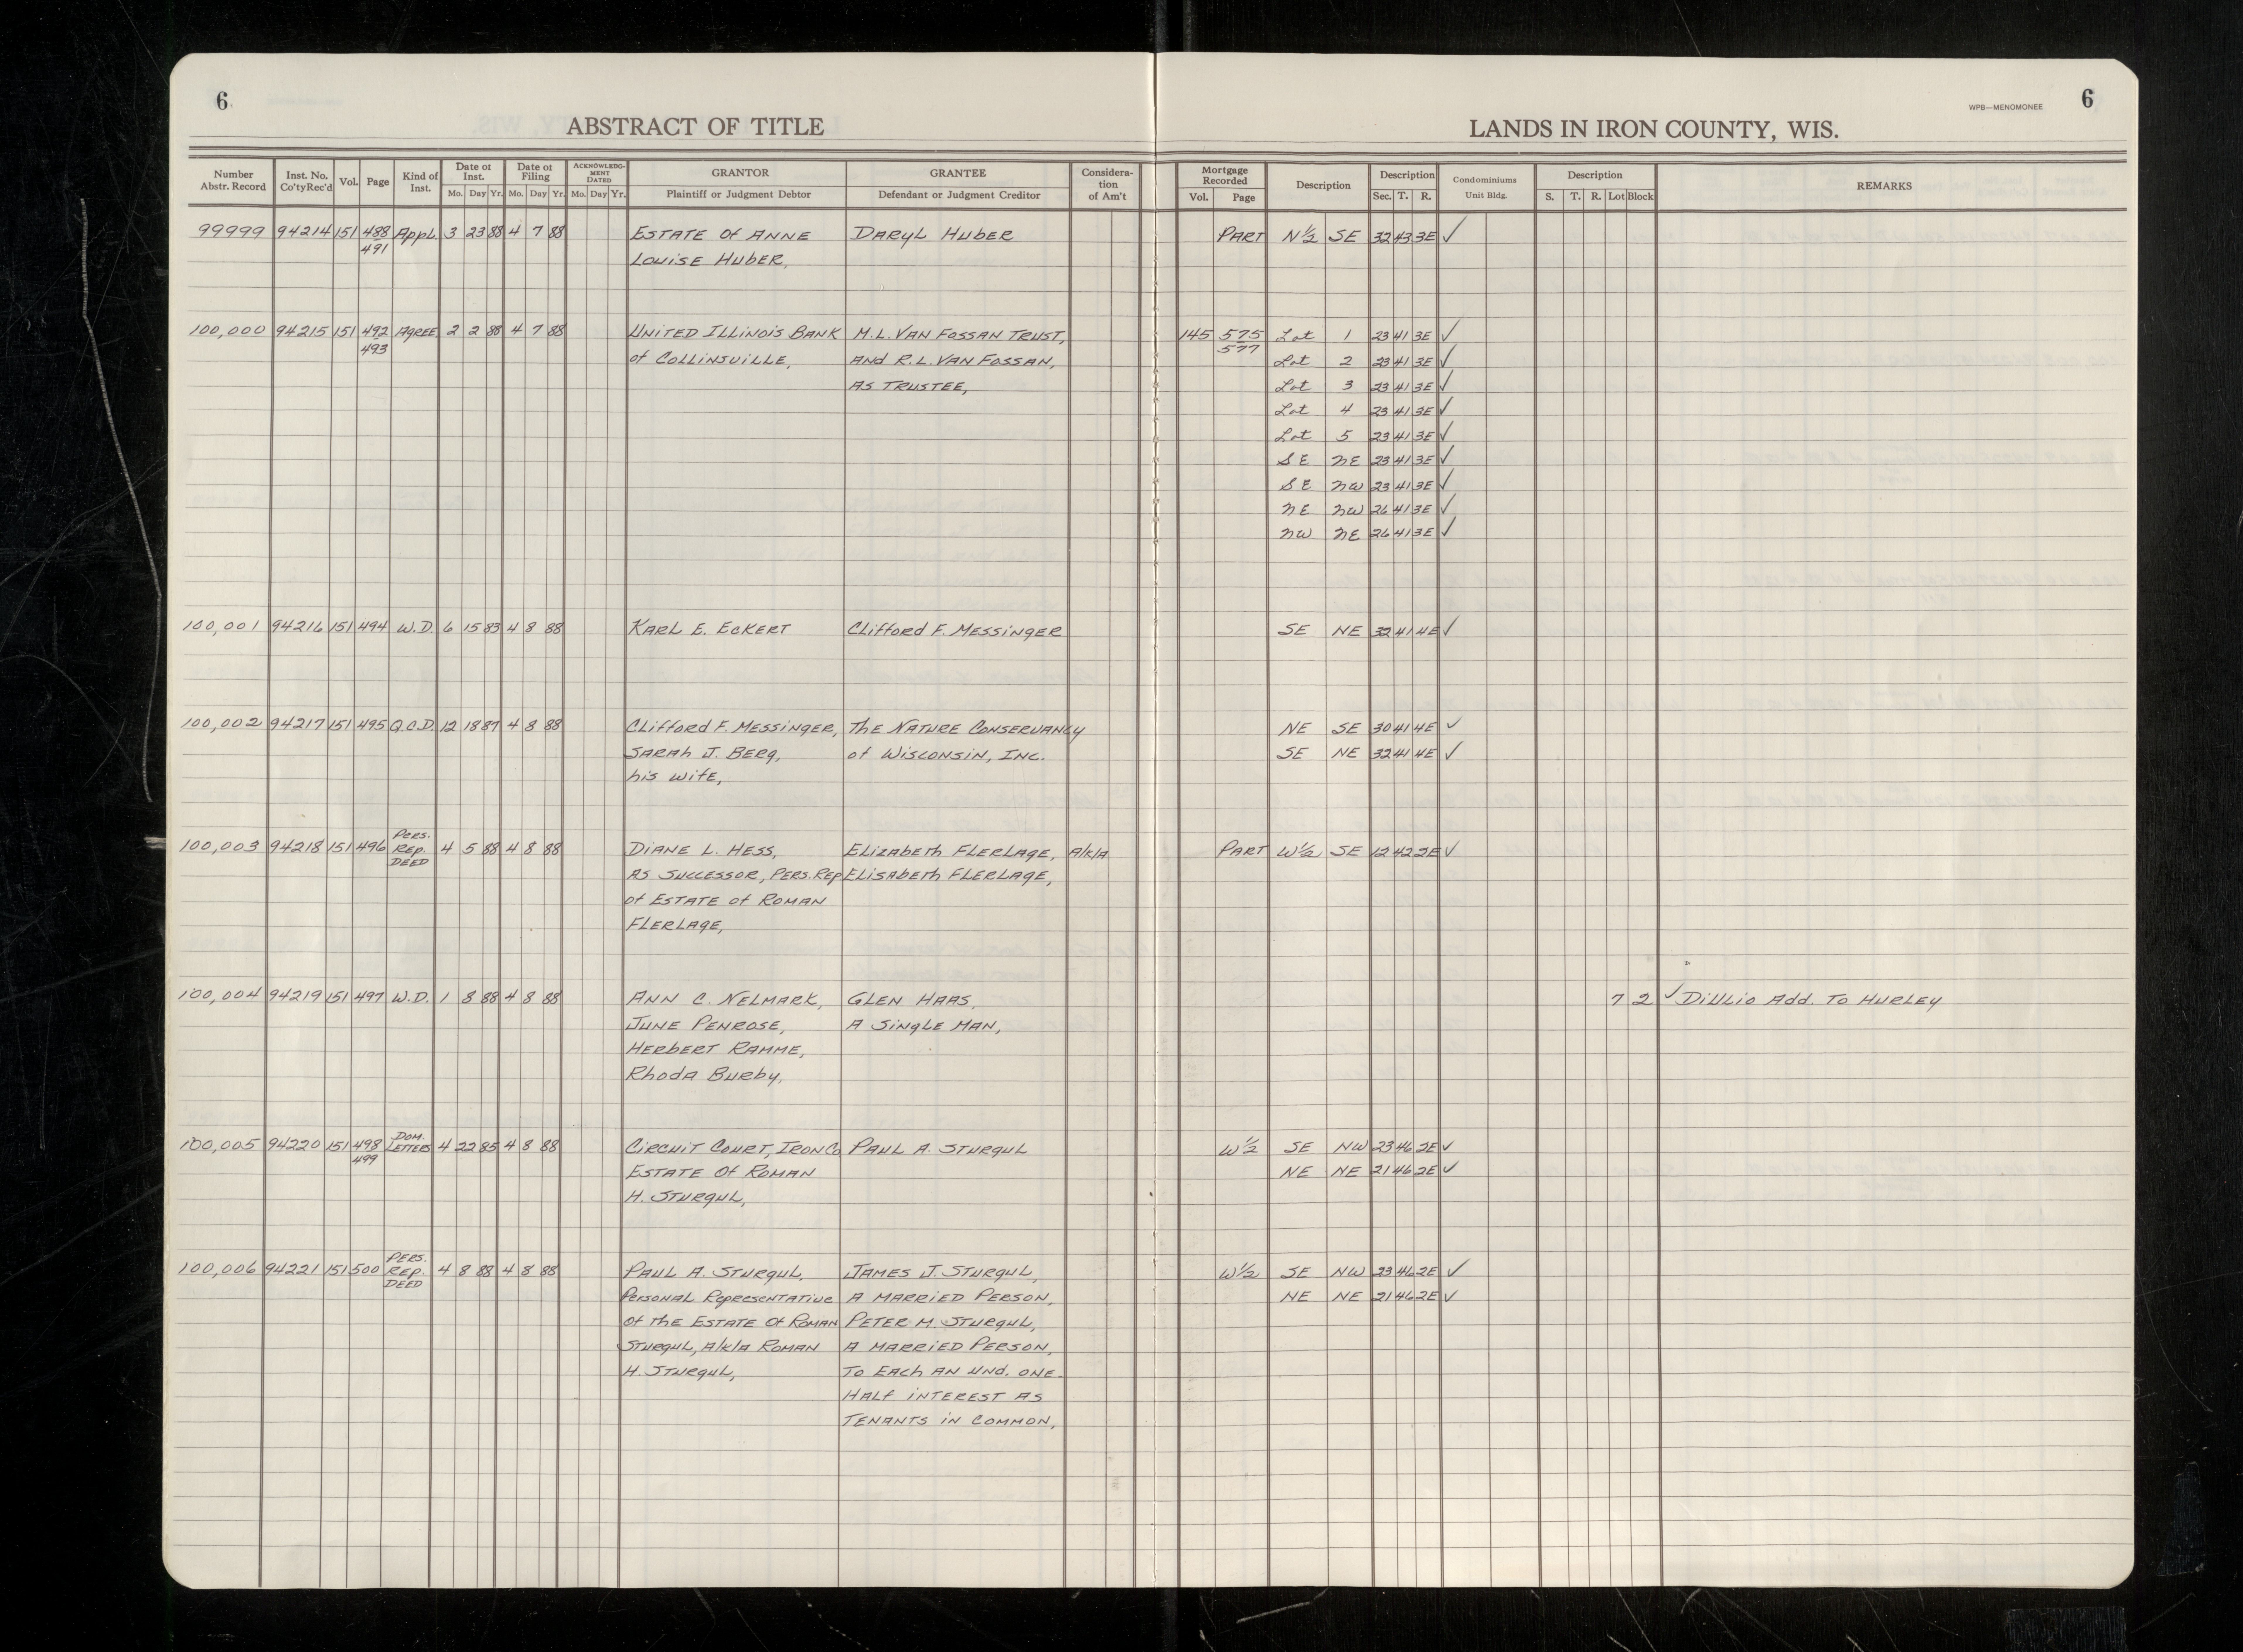 6
ABSTRACT OF TITLE
LANDS IN IRON COUNTY, WIS.
WPB—MENOMONEE
6
Number Abstr. Record Inst. No. Co'tyRec'd Vol. Page Kind of Inst. Date of Inst. Mo. Day Yr. Date of Filing Mo. Day Yr. ACKNOWLEDGMENT DATED Mo. Day Yr. GRANTOR Plaintiff or Judgment Debtor GRANTEE Defendant or Judgment Creditor Consideration of Am't Mortgage Recorded Vol. Page Description Description Sec. T. R. Condominiums Unit Bldg. Description S. T. R. Lot Block REMARKS
99999 94214 151 488 Appl. 3 23 88 4 7 88 ESTATE Of ANNE DARYL HUBER PART N½ SE 32 43 3E ✓
491 LOUISE HUBER,
100,000 94215 151 492 AGREE. 2 2 88 4 7 88 UNITED ILLINOIS BANK M.L. VAN FOSSAN TRUST, 145 575 Lot 1 23 41 3E ✓
493 of COLLINSVILLE, AND R.L. VAN FOSSAN, 577 Lot 2 23 41 3E ✓
AS TRUSTEE, Lot 3 23 41 3E ✓
Lot 4 23 41 3E ✓
Lot 5 23 41 3E ✓
SE NE 23 41 3E ✓
SE NW 23 41 3E ✓
NE NW 26 41 3E ✓
NW NE 26 41 3E ✓
100,001 94216 151 494 W.D. 6 15 83 4 8 88 KARL E. ECKERT Clifford F. MESSINGER SE NE 32 41 4E ✓
100,002 94217 151 495 Q.C.D. 12 18 87 4 8 88 Clifford F. MESSINGER, The NATURE CONSERVANCY NE SE 30 41 4E ✓
SARAh J. BERG, of WISCONSIN, INC. SE NE 32 41 4E ✓
his wife,
100,003 94218 151 496 Pers. Rep. DEED 4 5 88 4 8 88 DIANE L. HESS, ELIZABETH FLERLAGE, A/K/A PART W½ SE 12 42 2E ✓
AS SUCCESSOR, PERS. REP ELISABETH FLERLAGE,
of ESTATE of ROMAN
FLERLAGE,
100,004 94219 151 497 W.D. 1 8 88 4 8 88 ANN C. NELMARK, GLEN HAAS, 7 2 ✓ DiUlio Add. To HURLEY
JUNE PENROSE, A SINGLE MAN,
HERBERT RAMME,
Rhoda Burby,
100,005 94220 151 498 DOM. LETTERS 4 22 85 4 8 88 CIRCUIT COURT, IRON Co PAUL A. STURGUL W½ SE NW 23 46 2E ✓
499 ESTATE Of ROMAN NE NE 21 46 2E ✓
H. STURGUL,
100,006 94221 151 500 PERS. REP. DEED 4 8 88 4 8 88 PAUL A. STURGUL, JAMES J. STURGUL, W½ SE NW 23 46 2E ✓
PERSONAL REPRESENTATIVE A MARRIED PERSON, NE NE 21 46 2E ✓
Of the ESTATE Of ROMAN PETER M. STURGUL,
STURGUL, A/K/A ROMAN A MARRIED PERSON,
H. STURGUL, TO EACH AN UND. ONE-
HALF INTEREST AS
TENANTS IN COMMON,